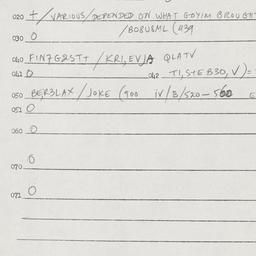 020 + / VARIOUS / DEPENDED ON WHAT GOYIM BROUGHT
/ BOBUBML (439
030 0
040 FIN7G2STT / KRI, EVJA QLATV
041 0 042 T1, S+E B30, V) =
050 BER3LAX / JOKE (900 IV / B / 520 - 560
051 0
060 0
070 0
071 0